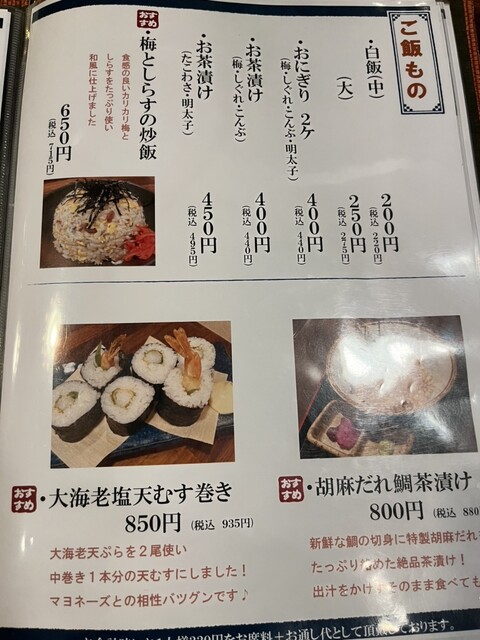 ご飯もの
・白飯(中) 200円(税込 220円)
(大) 250円(税込 275円)
・おにぎり 2ケ 400円(税込 440円)
(梅・しぐれ・こんぶ・明太子)
・お茶漬け 400円(税込 440円)
(梅・しぐれ・こんぶ)
・お茶漬け 450円(税込 495円)
(たこわさ・明太子)
おすすめ
・梅としらすの炒飯
食感の良いカリカリ梅と
しらすをたっぷり使い
和風に仕上げました
650円
(税込 715円)
おすすめ
・大海老塩天むす巻き
850円 (税込 935円)
大海老天ぷらを2尾使い
中巻き1本分の天むすにしました!
マヨネーズとの相性バツグンです♪
おすすめ
・胡麻だれ鯛茶漬け
800円 (税込 880
新鮮な鯛の切身に特製胡麻だれ
たっぷり絡めた絶品茶漬け!
出汁をかけずそのまま食べても
330円をお席料+お通し代として頂戴しております。